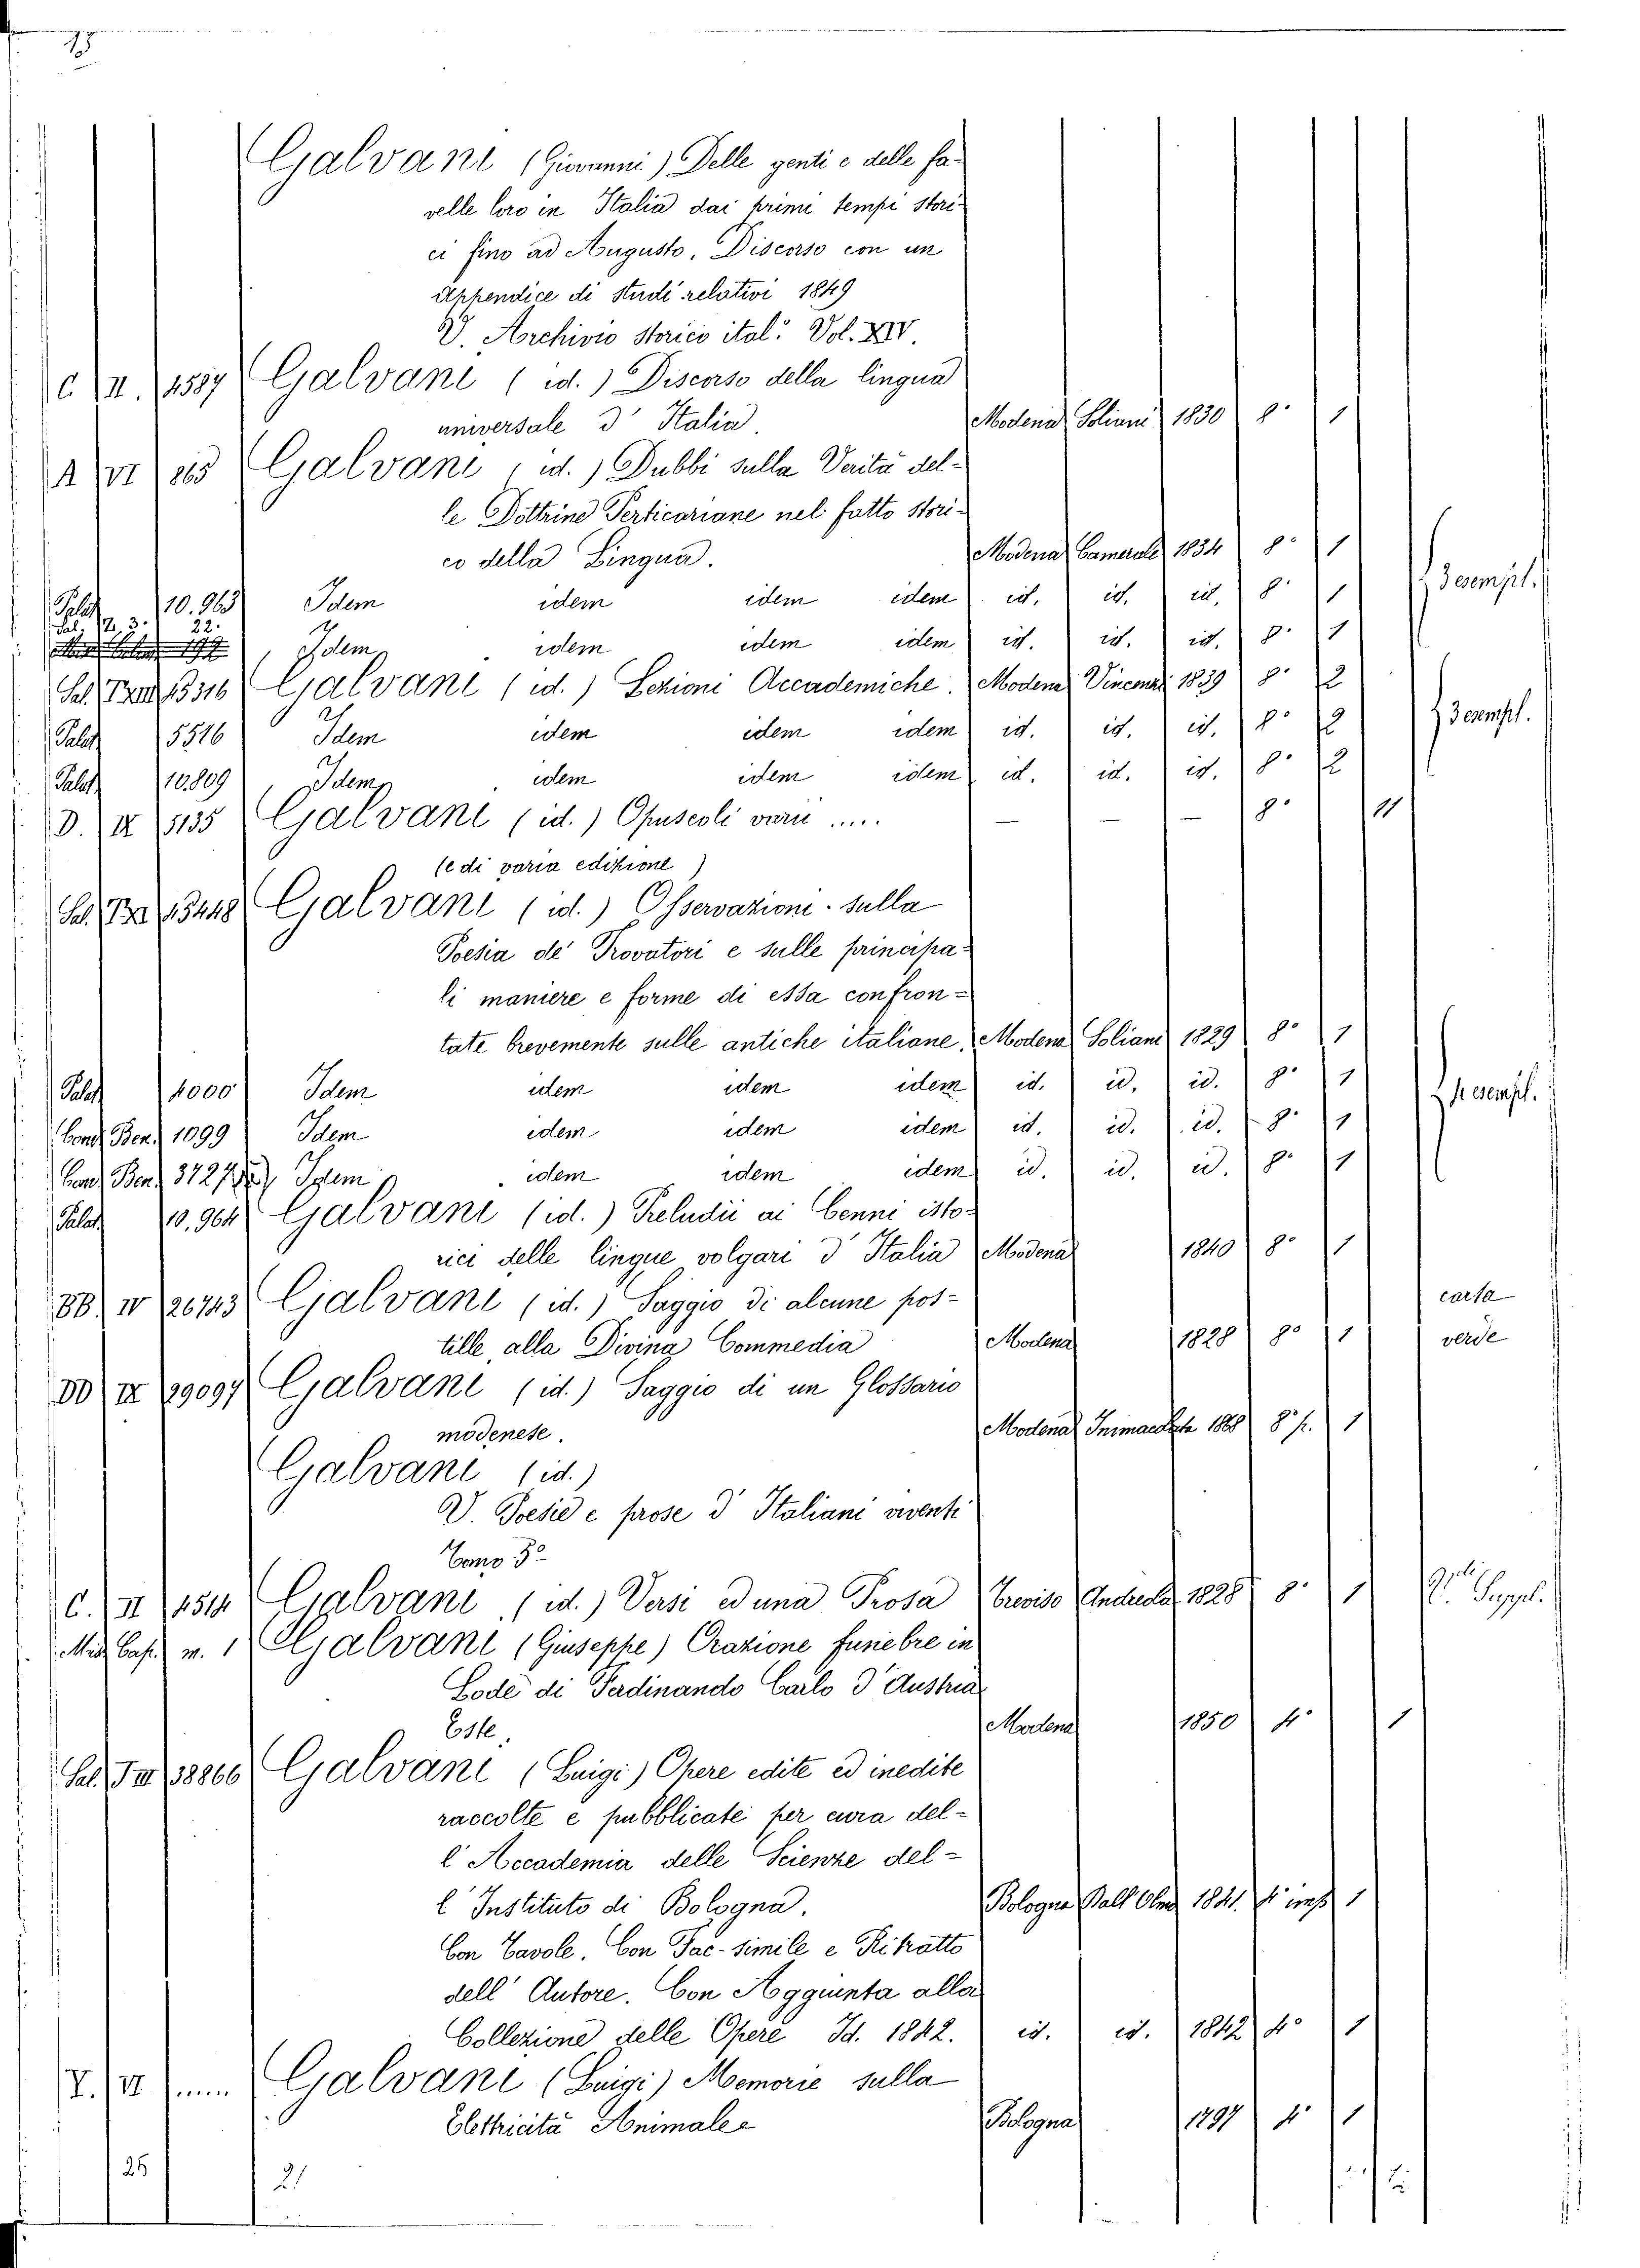 18
Galvani (Giovanni) Delle genti e delle fa-
velle loro in Italia dai primi tempi stori-
ci fino ad Augusto, Discorso con un
Appendice di studi relativi 1849
V. Archivio storico ital.º Vol. XIV.
C. II. 4587 Galvani (id.) Discorso della lingua
universale d' Italia. Modena Soliani 1830 8º 1
A VI 865 Galvani (id.) Dubbi sulla Verità del-
le Dottrine Perticariane nel fatto stori-
co della Lingua. Modena Camerale 1834 8º 1
Palat. 10.963 Idem idem idem idem id. id. id. 8º 1 3 esempl.
Sal. 2. 3. 22. Idem idem idem idem id. id. id. 8º 1
Sal. 15316 Galvani (id.) Lezioni Accademiche. Modena Vincenzi 1839 8º 2
Palat. 5516 Idem idem idem idem id. id. id. 8º 2 3 esempl.
Palat. 10.809 Idem idem idem idem id. id. id. 8º 2
D. IX 5135 Galvani (id.) Opuscoli varii ..... — — — 8º 11
(e di varia edizione)
Sal. 15448 Galvani (id.) Osservazioni sulla
Poesia de' Trovatori e sulle principa-
li maniere e forme di essa confron-
tate brevemente sulle antiche italiane. Modena Soliani 1829 8º 1
Palat. 4000 Idem idem idem idem id. id. id. 8º 1 4 esempl.
Cand. Ben. 1099 Idem idem idem idem id. id. id. 8º 1
Cand. Ben. 3727 Idem idem idem idem id. id. id. 8º 1
Palat. 10.964 Galvani (id.) Preludii ai Cenni isto-
rici delle lingue volgari d' Italia Modena 1840 8º 1
BB. IV 26743 Galvani (id.) Saggio di alcune pos-
tille alla Divina Commedia Modena 1828 8º 1 carta verde
DD IX 29097 Galvani (id.) Saggio di un Glossario
modenese. Modena 1868 8º p. 1
Galvani (id.)
V. Poesie e prose d' Italiani viventi
Tomo 3º
C. II 4514 Galvani (id.) Versi ed una Prosa Treviso Andreola 1828 8º 1 Suppl.
m. 1 Galvani (Giuseppe) Orazione funebre in
Lode di Ferdinando Carlo d' Austria
Este. Modena 1850 4º 1
Sal. T III 38866 Galvani (Luigi) Opere edite ed inedite
raccolte e pubblicate per cura del-
l' Accademia delle Scienze del-
l' Instituto di Bologna. Bologna Dall' Olmo 1841. 4º imp 1
Con Tavole. Con Fac-simile e Ritratto
dell' Autore. Con Aggiunta alla
Collezione delle Opere Id. 1842. id. id. 1842 4º 1
Y. VI ..... Galvani (Luigi) Memorie sulla
Elettricità Animale Bologna 1797 4º 1
25 21